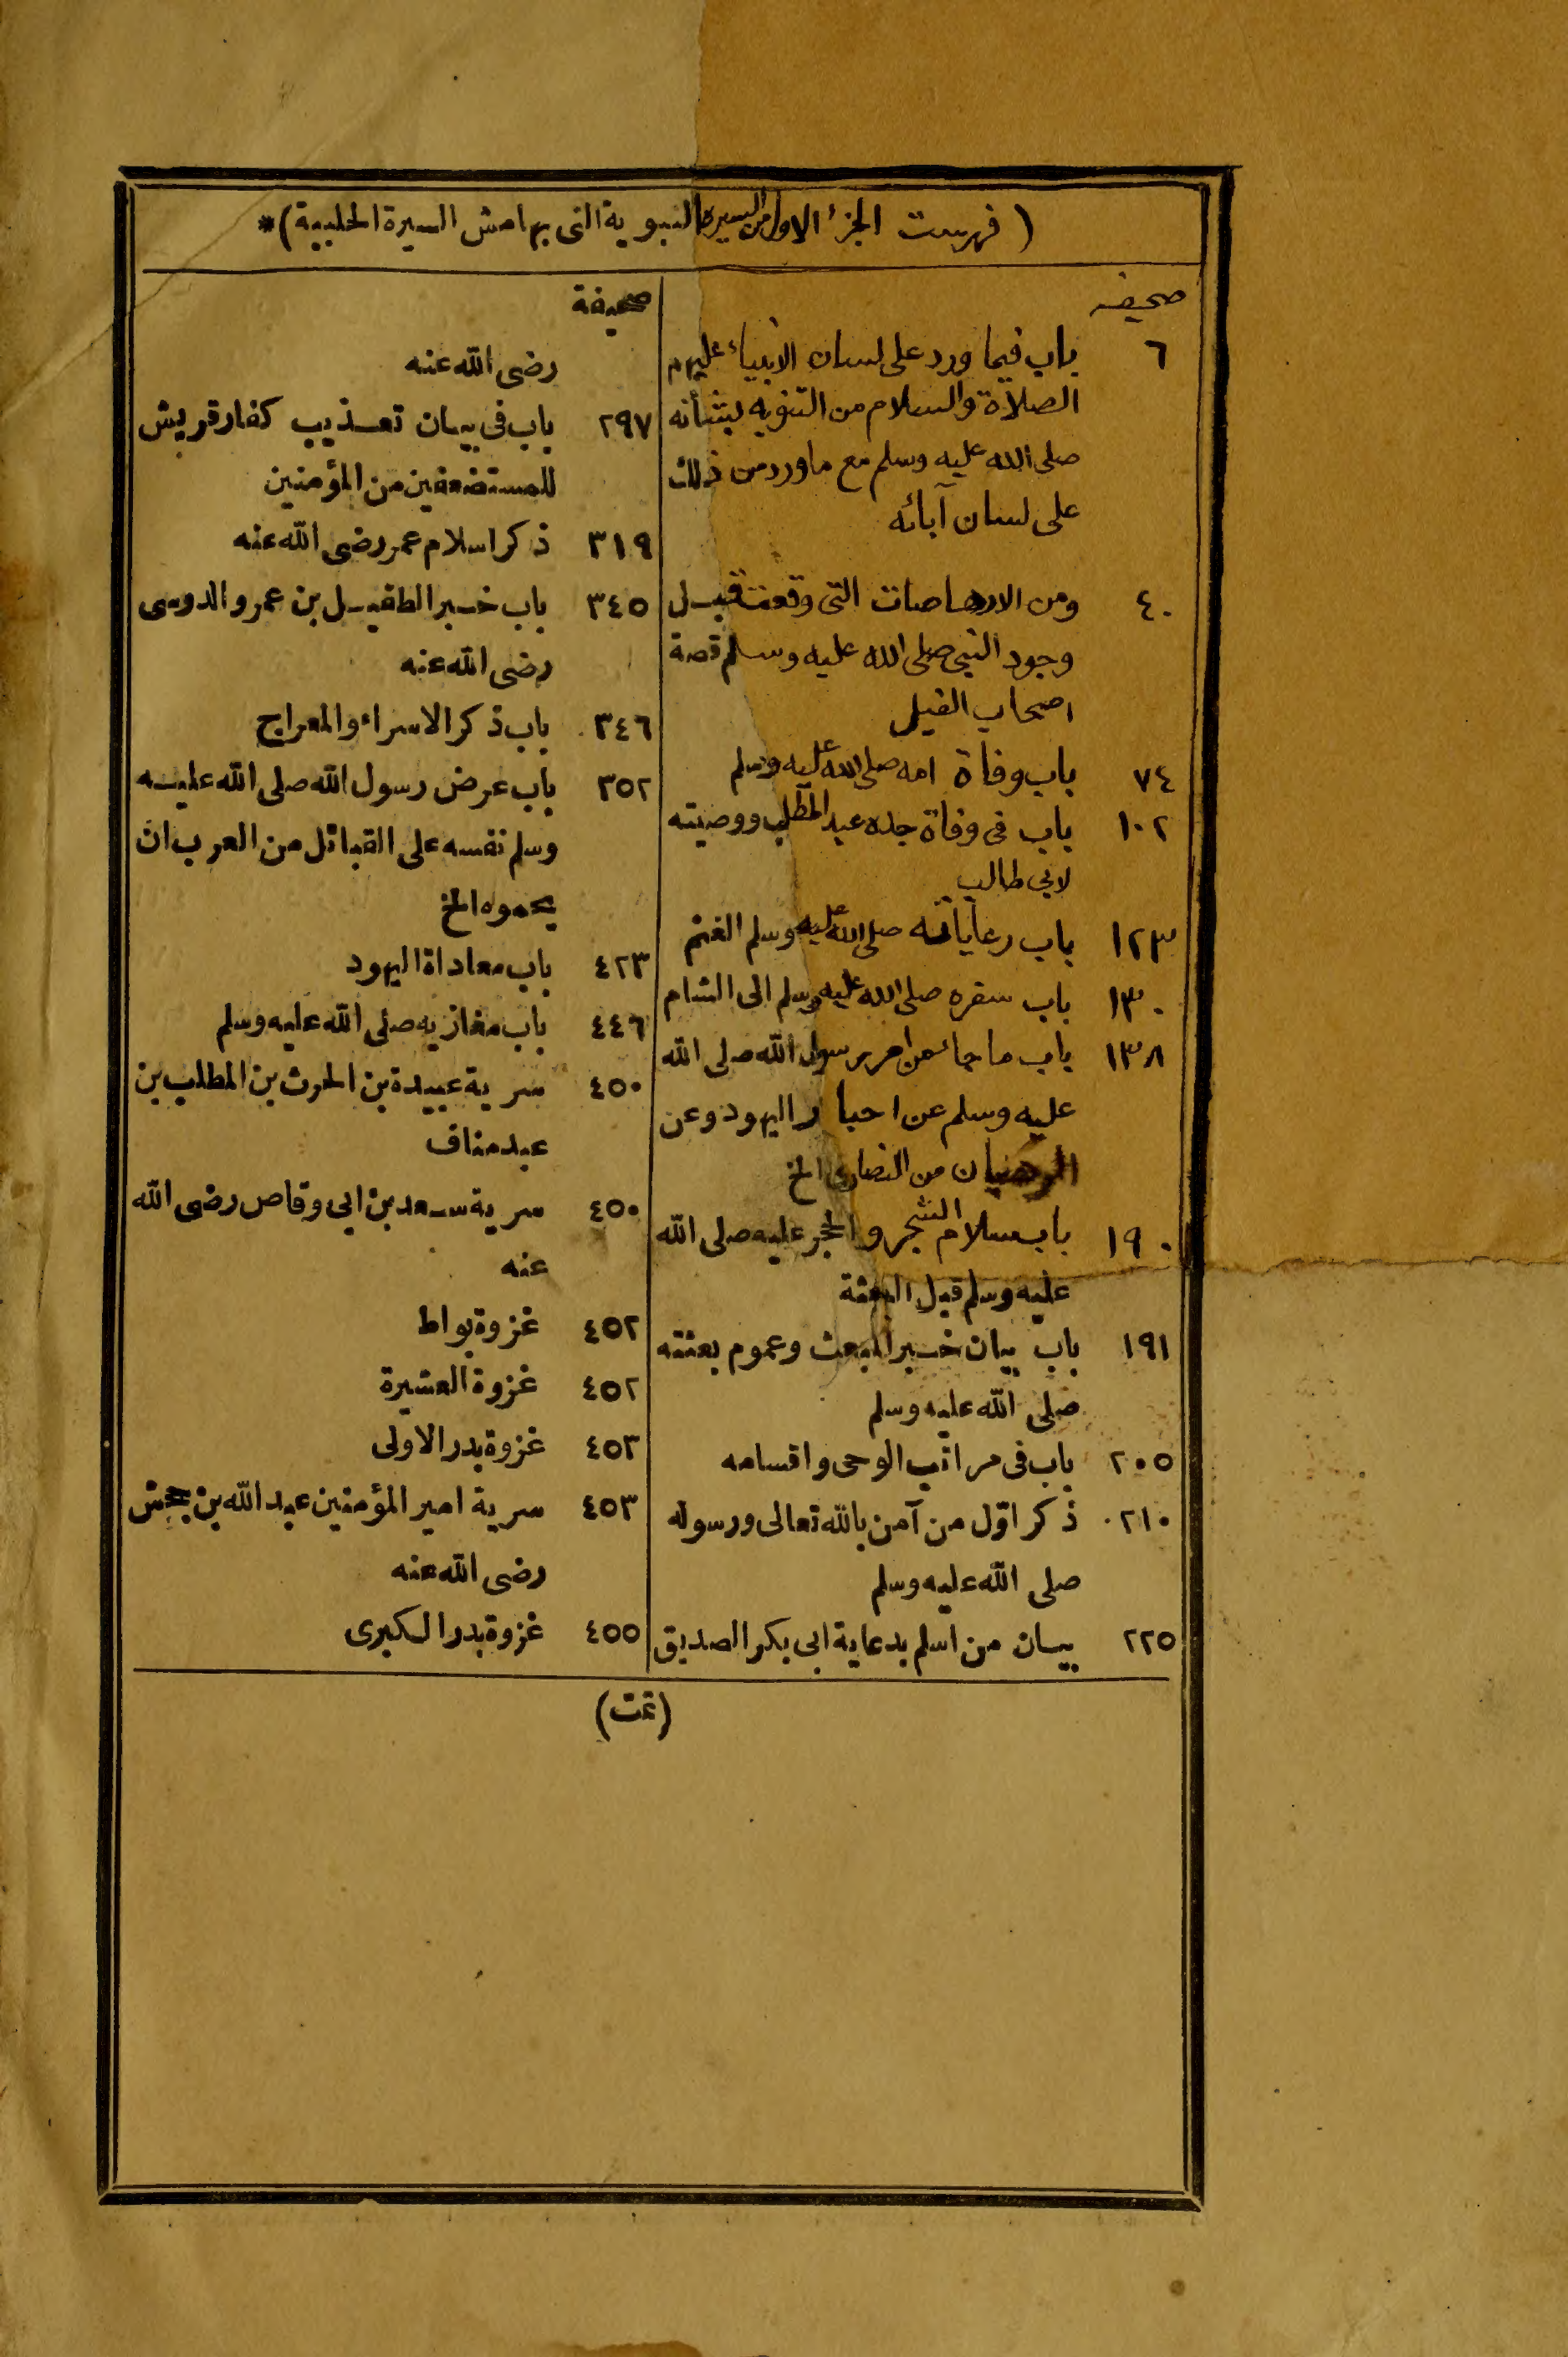 (فهرست الجزء الاول من السيرة النبوية التى بهامش السيرة الحلبية)*
صحيفه
٦ باب فيما ورد على لسان الانبياء عليهم
الصلاة والسلام من التنويه بشأنه
صلى الله عليه وسلم مع ما ورد من ذلك
على لسان آبائه
٤٠ ومن الارهاصات التى وقعت قبل
وجود النبى صلى الله عليه وسلم قصة
اصحاب الفيل
٧٤ باب وفاة امه صلى الله عليه وسلم
١٠٢ باب فى وفاة جده عبد المطلب ووصيته
لابى طالب
١٢٣ باب رعايته صلى الله عليه وسلم الغنم
١٣٠ باب سفره صلى الله عليه وسلم الى الشام
١٣٨ باب ما جاء من امر رسول الله صلى الله
عليه وسلم عن احبار اليهود وعن
الرهبان من النصارى الخ
١٩٠ باب سلام الشجر والحجر عليه صلى الله
عليه وسلم قبل البعثة
١٩١ باب بيان خبر المبعث وعموم بعثته
صلى الله عليه وسلم
٢٠٥ باب فى مراتب الوحى واقسامه
٢١٠ ذكر اوّل من آمن بالله تعالى ورسوله
صلى الله عليه وسلم
٢٢٥ بيان من اسلم بدعاية ابى بكر الصديق
صحيفة
رضى الله عنه
٢٩٧ باب فى بيان تعذيب كفار قريش
للمستضعفين من المؤمنين
٣١٩ ذكر اسلام عمر رضى الله عنه
٣٤٥ باب خبر الطفيل بن عمرو الدوسى
رضى الله عنه
٣٤٦ باب ذكر الاسراء والمعراج
٣٥٢ باب عرض رسول الله صلى الله عليه
وسلم نفسه على القبائل من العرب ان
يحموه الخ
٤٢٣ باب معاداة اليهود
٤٤٦ باب مغازيه صلى الله عليه وسلم
٤٥٠ سرية عبيدة بن الحرث بن المطلب بن
عبد مناف
٤٥٠ سرية سعد بن ابى وقاص رضى الله
عنه
٤٥٢ غزوة بواط
٤٥٢ غزوة العشيرة
٤٥٣ غزوة بدر الاولى
٤٥٣ سرية امير المؤمنين عبد الله بن جحش
رضى الله عنه
٤٥٥ غزوة بدر الكبرى
(تمت)